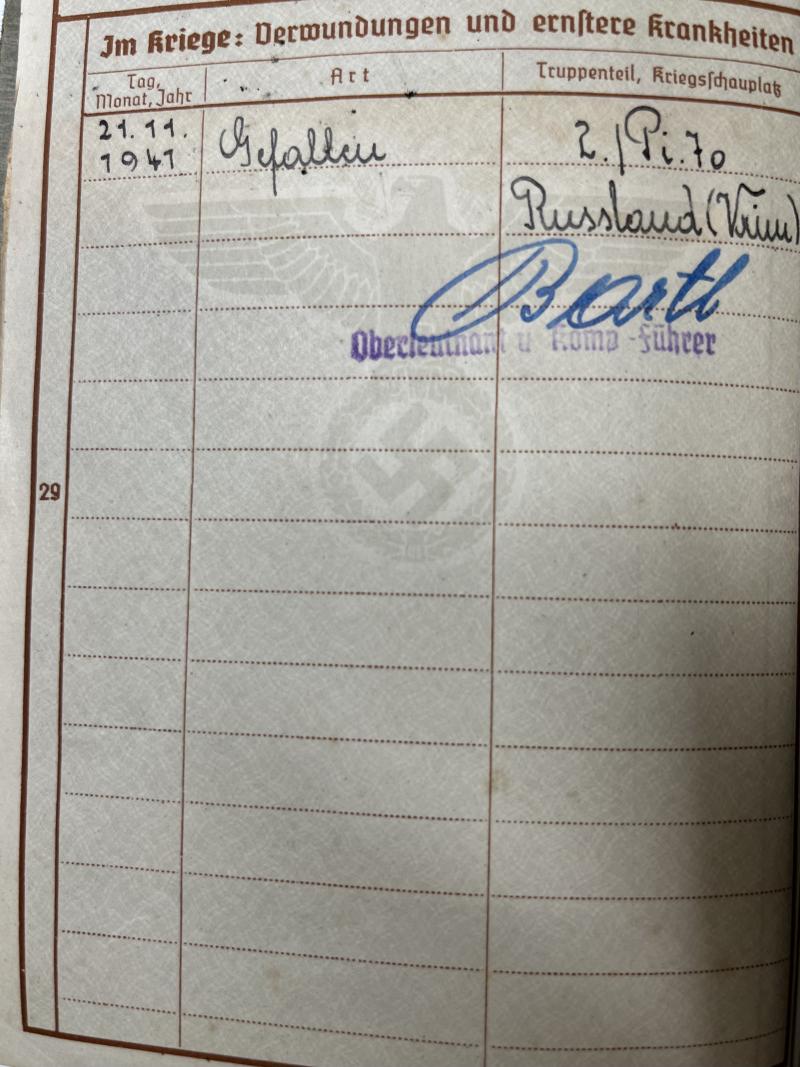 Im Kriege: Verwundungen und ernstere Krankheiten
Tag, Monat, Jahr
Art
Truppenteil, Kriegsschauplatz
21. 11. 1941
Gefallen
2./Pi. 70
Russland (Krim)
Bartl
Oberleutnant u Komp-Führer
29